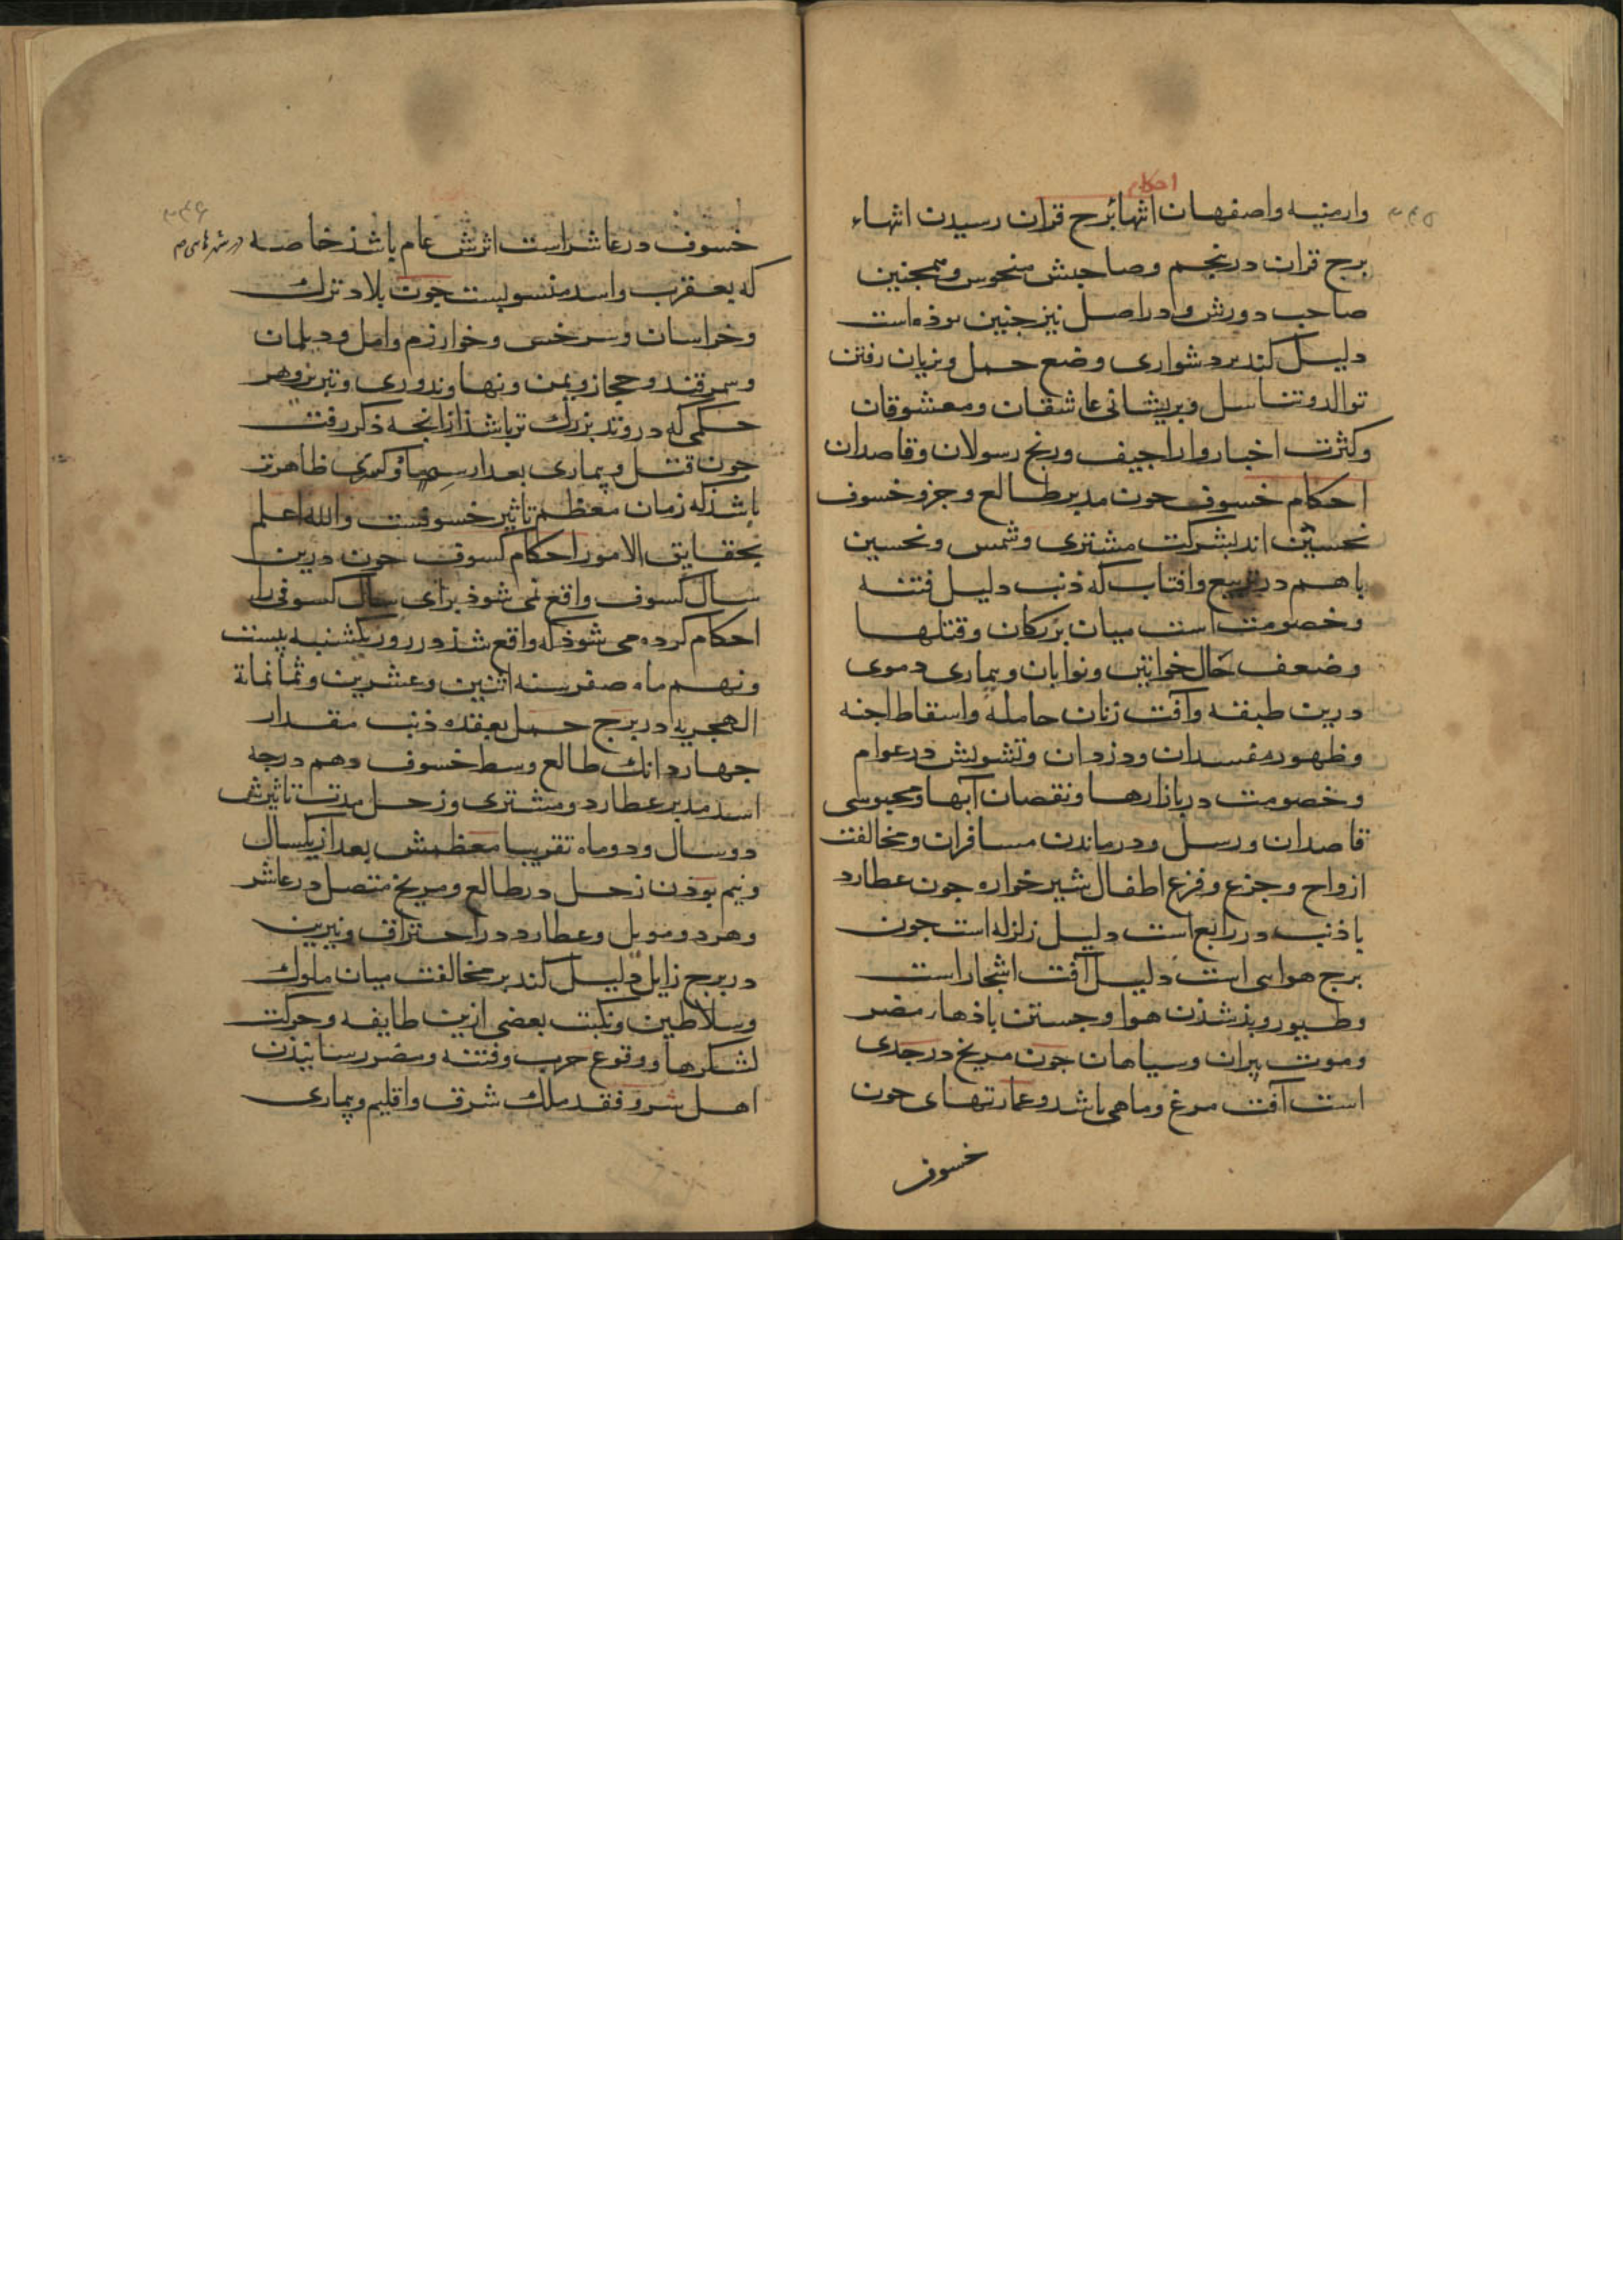 احکام
وارمنیه واصفهان انتها ببرج قران رسیدن انتهاء
برج قران در پنجم وصاحبش منحوس وهمچنین
صاحب دورش و در اصل نیز جنین بوذه است
دلیل کند بر دشواری وضع حمل وبزیان رفتن
توالد وتناسل وپریشانی عاشقان ومعشوقان
وکثرت اخبار واراجیف ورنج رسولان وقاصدان
احکام خسوف جون مدبر طالع وجزو خسوف
نحسین اند بشرکت مشتری وشمس ونحسین
باهم در تربیع وافتاب که ذنب دلیل فتنه
وخصومت است میان بزرکان وقتلها
وضعف حال خواتین ونوابان وبیماری دموی
درین طبقه وآفت زنان حامله واسقاط اجنه
وظهور مفسدان ودزدان وتشویش در عوام
وخصومت در بازارها ونقصان آبها ومحبوسی
قاصدان ورسل ودرماندن مسافران ومخالفت
ازواج وجزع وفزع اطفال شیرخواره جون عطارد
با ذنب در رابع است دلیل زلزله است جون
برج هوایی است دلیل آفت اشجار است
وطیور وبذ شذن هوا وجستن باذهاء مضر
وموت پیران وسیاهان جون مریخ در جدی
است آفت مرغ وماهی باشد وعمارتهای جون
خسوف
۳۴۵
۳۴۶
خسوف در عاشر است اثرش عام باشذ خاصه در شهرهایی
که بعقرب واسد منسوبست جون بلاد ترک
وخراسان وسرخس وخوارزم وامل ودیلمان
وسمرقند وحجاز ویمن ونهاوند وری وتبریز وهر
حکمی که در وتد بزرک تر باشذ ازانجه ذکر رفت
جون قتل وبیماری بعد از ظاهرتر
باشذ که زمان معظم تاثیر خسوفست والله اعلم
بحقایق الامور احکام کسوف جون درین
سال کسوف واقع نمی شوذ برای سال کسوفی را
احکام کرده می شوذ که واقع شذ در روز یکشنبه بیست
ونهم ماه صفر سنه اثنین وعشرین وثمانمائة
الهجریه در برج حمل بعقده ذنب مقدار
جهار دانک طالع وسط خسوف دهم درجه
اسد مدبر عطارد ومشتری وزحل مدت تاثیرش
دوسال ودوماه تقریبا معظمش بعد از یکسال
ونیم بوذن زحل در طالع ومریخ متصل در عاشر
وهردو وعطارد در احتراق ونیرین
در برج زایل دلیل کند بر مخالفت میان ملوک
وسلاطین ونکبت بعضی ازین طایفه وحرکت
لشکرها ووقوع حرب وفتنه ومضر رسانیذن
اهل شر وفقد ملک شرق واقلیم وبیماری